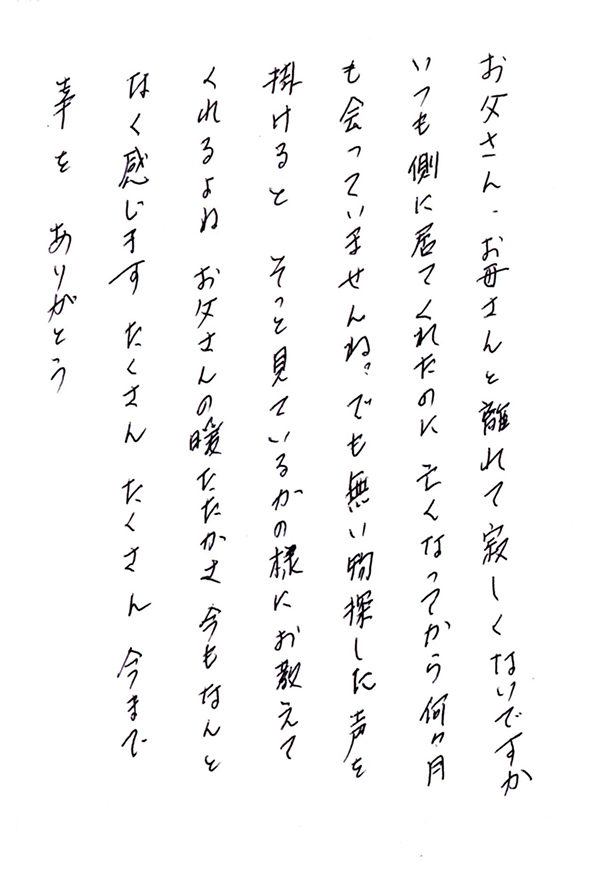 お父さん、お母さんと離れて寂しくないですか
いつも側に居てくれたのに 亡くなってから何ヶ月
も会っていませんね。でも無い物探した声を
掛けると そっと見ているかの様にお教えて
くれるよね お父さんの暖たたかさ今もなんと
なく感じます たくさん たくさん 今まで
幸を ありがとう